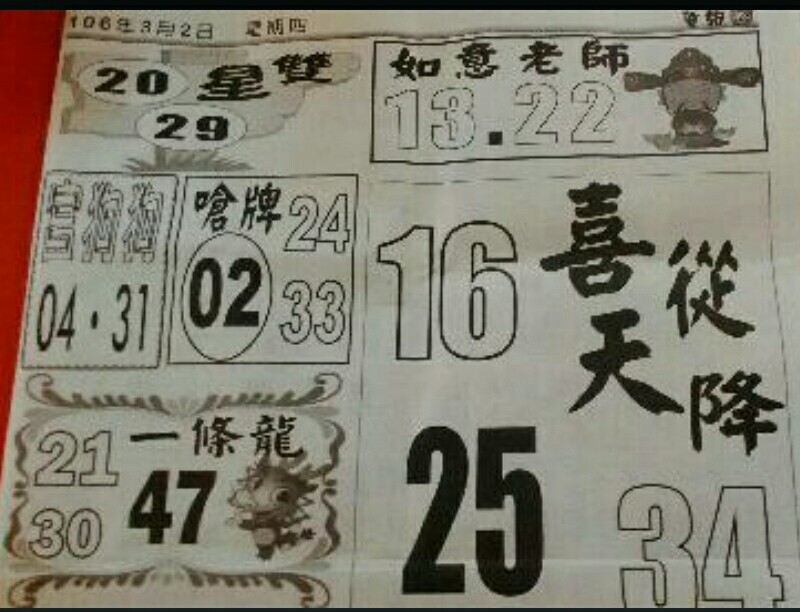 106年3月2日 星期四
20 雙星
29
如意老師
13.22
04.31
嗆牌
24
02
33
16
喜從天降
25
34
一條龍
21
47
30